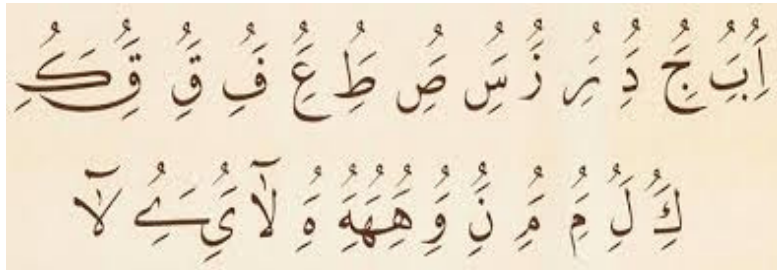 اَُِ بَُِ جَُِ دَُِ رَُِ زَُ سَُِ صَُِ طَُِ عَُِ فَُِ قَُِ قَُِ كَُِ
كَُِ لَُِ مَُِ مَُِ نَُِ وَُِ هَُِهَُهَُِ هَُِ لآ يَُِ ےَُِ لآ